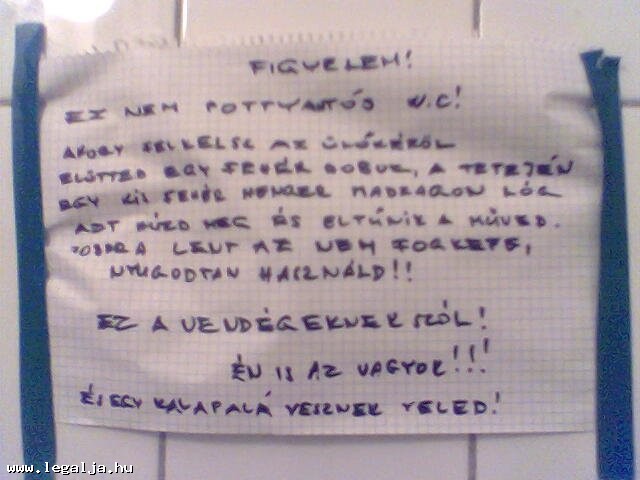 FIGYELEM!
EZ NEM POTTYANTÓS W.C!
AHOGY FELKELSZ AZ ÜLŐKÉRŐL
ELŐTTED EGY FEHÉR DOBOZ, A TETEJÉN
EGY KIS FEHÉR HENGER MADZAGON LÓG
AZT HÚZD MEG ÉS ELTŰNIK A MŰVED.
JOBBRA LENT AZ NEM SÖRKEFE,
NYUGODTAN HASZNÁLD!!
EZ A VENDÉGEKNEK SZÓL!
ÉN IS AZ VAGYOK!!!
ÉS EGY KALAP ALÁ VESZNEK VELED!
www.legalja.hu